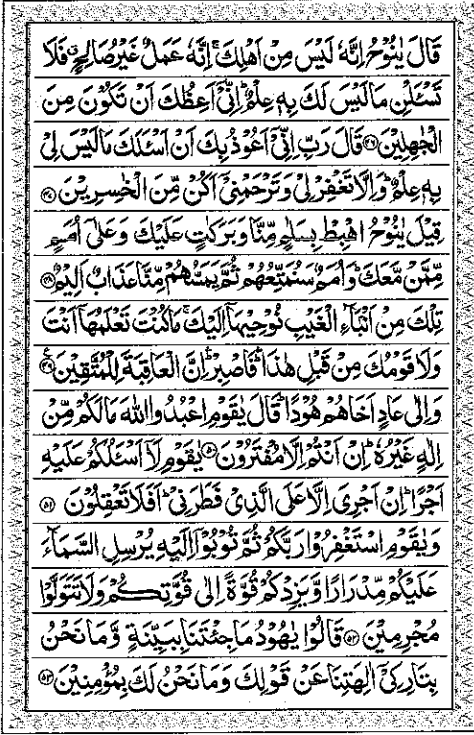 قَالَ يٰنُوْحُ اِنَّهٗ لَيْسَ مِنْ اَهْلِكَ ۚ اِنَّهٗ عَمَلٌ غَيْرُ صَالِحٍ ۖ فَلَا
تَسْـَٔلْنِ مَا لَيْسَ لَكَ بِهٖ عِلْمٌ ؕ اِنِّيْۤ اَعِظُكَ اَنْ تَكُوْنَ مِنَ
الْجٰهِلِيْنَ ۝۴۶ قَالَ رَبِّ اِنِّيْۤ اَعُوْذُ بِكَ اَنْ اَسْـَٔلَكَ مَا لَيْسَ لِيْ
بِهٖ عِلْمٌ ؕ وَاِلَّا تَغْفِرْ لِيْ وَتَرْحَمْنِيْۤ اَكُنْ مِّنَ الْخٰسِرِيْنَ ۝۴۷
قِيْلَ يٰنُوْحُ اهْبِطْ بِسَلٰمٍ مِّنَّا وَبَرَكٰتٍ عَلَيْكَ وَعَلٰۤى اُمَمٍ
مِّمَّنْ مَّعَكَ ؕ وَاُمَمٌ سَنُمَتِّعُهُمْ ثُمَّ يَمَسُّهُمْ مِّنَّا عَذَابٌ اَلِيْمٌ ۝۴۸
تِلْكَ مِنْ اَنْۢبَآءِ الْغَيْبِ نُوْحِيْهَاۤ اِلَيْكَ ۚ مَا كُنْتَ تَعْلَمُهَاۤ اَنْتَ
وَلَا قَوْمُكَ مِنْ قَبْلِ هٰذَا ؕۛ فَاصْبِرْ ؕۛ اِنَّ الْعَاقِبَةَ لِلْمُتَّقِيْنَ ۝۴۹ ع
وَاِلٰى عَادٍ اَخَاهُمْ هُوْدًا ؕ قَالَ يٰقَوْمِ اعْبُدُوا اللّٰهَ مَا لَكُمْ مِّنْ
اِلٰهٍ غَيْرُهٗ ؕ اِنْ اَنْتُمْ اِلَّا مُفْتَرُوْنَ ۝۵۰ يٰقَوْمِ لَاۤ اَسْـَٔلُكُمْ عَلَيْهِ
اَجْرًا ؕ اِنْ اَجْرِيَ اِلَّا عَلَى الَّذِيْ فَطَرَنِيْ ؕ اَفَلَا تَعْقِلُوْنَ ۝۵۱
وَيٰقَوْمِ اسْتَغْفِرُوْا رَبَّكُمْ ثُمَّ تُوْبُوْۤا اِلَيْهِ يُرْسِلِ السَّمَآءَ
عَلَيْكُمْ مِّدْرَارًا وَّيَزِدْكُمْ قُوَّةً اِلٰى قُوَّتِكُمْ وَلَا تَتَوَلَّوْا
مُجْرِمِيْنَ ۝۵۲ قَالُوْا يٰهُوْدُ مَا جِئْتَنَا بِبَيِّنَةٍ وَّمَا نَحْنُ
بِتَارِكِيْۤ اٰلِهَتِنَا عَنْ قَوْلِكَ وَمَا نَحْنُ لَكَ بِمُؤْمِنِيْنَ ۝۵۳